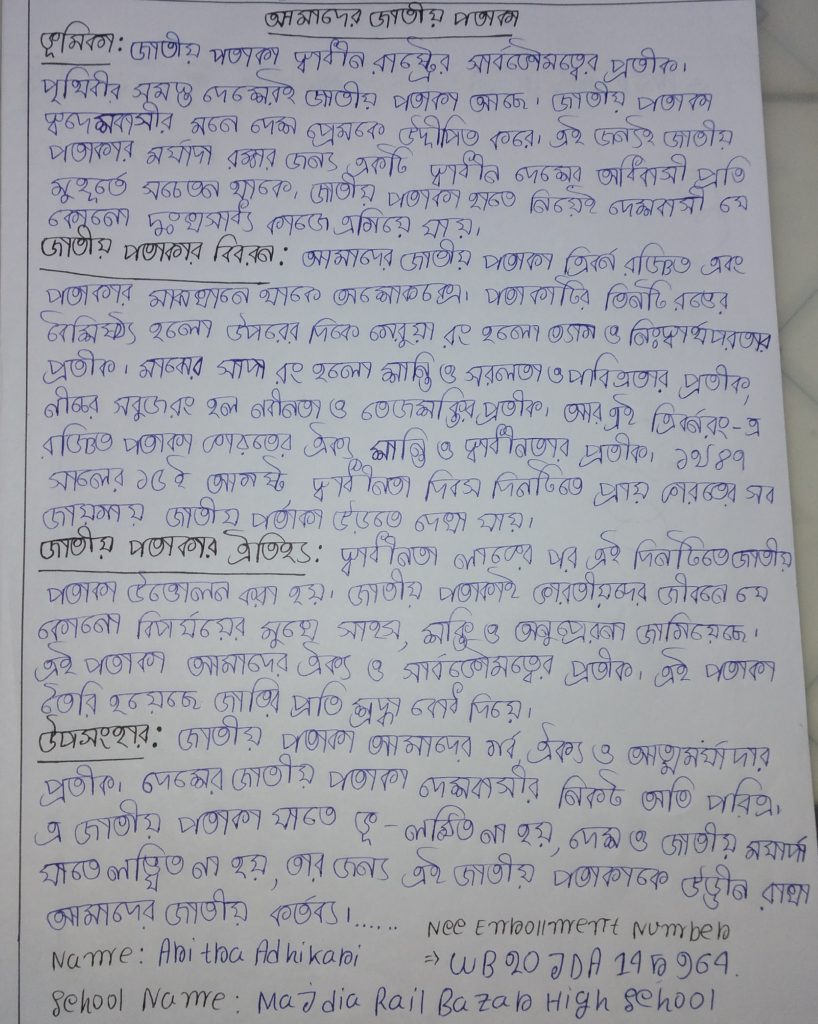 আমাদের জাতীয় পতাকা
ভূমিকা: জাতীয় পতাকা স্বাধীন রাষ্ট্রের সার্বভৌমত্বের প্রতীক।
পৃথিবীর সমস্ত দেশেরই জাতীয় পতাকা আছে। জাতীয় পতাকা
স্বদেশবাসীর মনে দেশ প্রেমকে উদ্দীপিত করে। এই জন্যই জাতীয়
পতাকার মর্যাদা রক্ষার জন্য একটি স্বাধীন দেশের অধিবাসী প্রতি
মুহূর্তে সচেতন থাকে। জাতীয় পতাকা হাতে নিয়েই দেশবাসী যে
কোনো দুঃখসাধ্য কাজে এগিয়ে যায়।
জাতীয় পতাকার বিবরন: আমাদের জাতীয় পতাকা ত্রিবর্ন রঞ্জিত এবং
পতাকার মাঝখানে থাকে অশোকচক্র। পতাকাটির তিনটি রঙের
বৈশিষ্ট্য হলো উপরের দিকে গেরুয়া রং হলো ত্যাগ ও নিঃস্বার্থপরতার
প্রতীক। মাঝের সাদা রং হলো শান্তি ও সরলতা ও পবিত্রতার প্রতীক,
নীচের সবুজরং হল নবীনতা ও তেজশক্তির প্রতীক। আর এই ত্রিবর্নরং-এ
রঞ্জিত পতাকা ভারতের ঐক্য শান্তি ও স্বাধীনতার প্রতীক। ১৯৪৭
সালের ১৫ই আগস্ট স্বাধীনতা দিবস দিনটিতে প্রায় ভারতের সব
জায়গায় জাতীয় পর্তাকা উড়তে দেখা যায়।
জাতীয় পতাকার ঐতিহ্য: স্বাধীনতা লাভের পর এই দিনটিতে জাতীয়
পতাকা উত্তোলন করা হয়। জাতীয় পতাকাই ভারতীয়দের জীবনে যে
কোনো বিপর্যয়ের মুখে সাহস, শক্তি ও অনুপ্রেরনা জাগিয়েছে।
এই পতাকা আমাদের ঐক্য ও সার্বভৌমত্বের প্রতীক। এই পতাকা
তৈরি হয়েছে জাতির প্রতি শ্রদ্ধা বোধ দিয়ে।
উপসংহার: জাতীয় পতাকা আমাদের গর্ব, ঐক্য ও আত্মমর্যাদার
প্রতীক। দেশের জাতীয় পতাকা দেশবাসীর নিকট অতি পবিত্র।
এ জাতীয় পতাকা যাতে ভূ-লুণ্ঠিত না হয়, দেশ ও জাতীয় মর্যাদা
যাতে লঙ্ঘিত না হয়, তার জন্য এই জাতীয় পতাকাকে উড্ডীন রাখা
আমাদের জাতীয় কর্তব্য।......
Ncc Enrollment Number
Name: Aritra Adhikari ⇒ WB20JDA14R964.
School Name: Majdia Rail Bazar High School